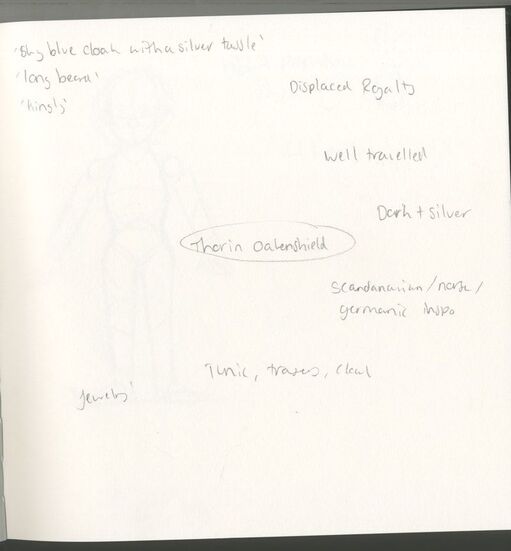 'Sky blue cloak with a silver tassle'
'long beard'
'kingly'
Displaced Royalty
well travelled
Dark + silver
Thorin Oakenshield
Scandanavian/norse/
germanic inspo
Tunic, trousers, cloak
jewels'